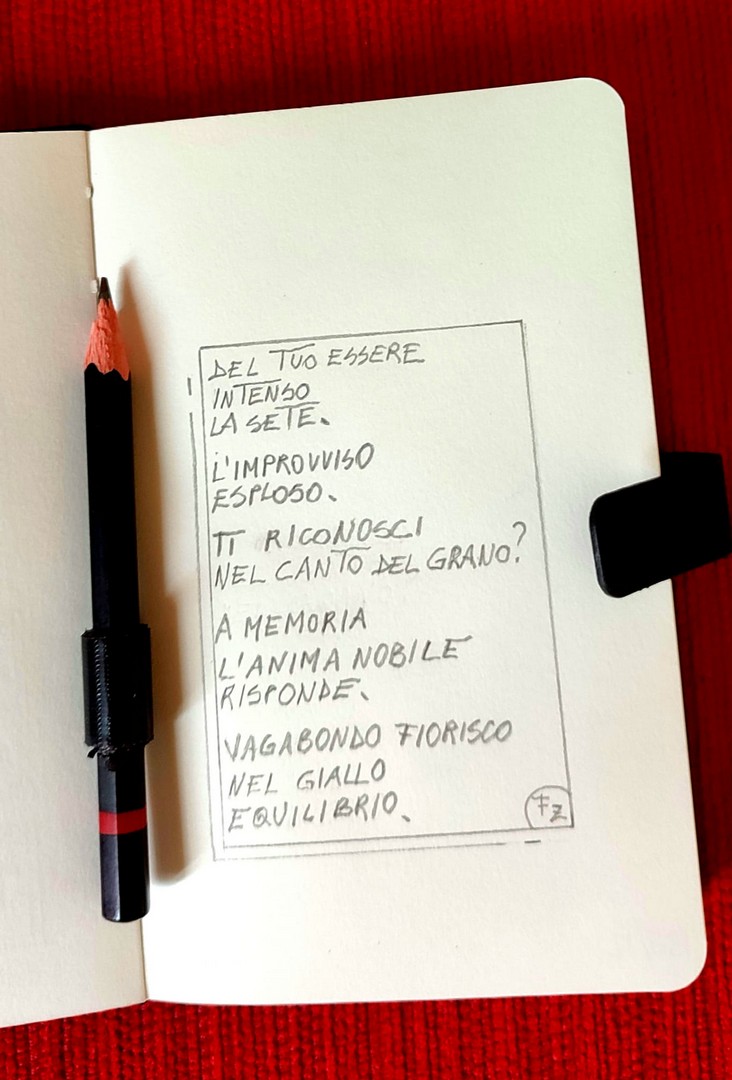 DEL TUO ESSERE
INTENSO
LA SETE.
L'IMPROVVISO
ESPLOSO.
TI RICONOSCI
NEL CANTO DEL GRANO?
A MEMORIA
L'ANIMA NOBILE
RISPONDE.
VAGABONDO FIORISCO
NEL GIALLO
EQUILIBRIO.
FZ